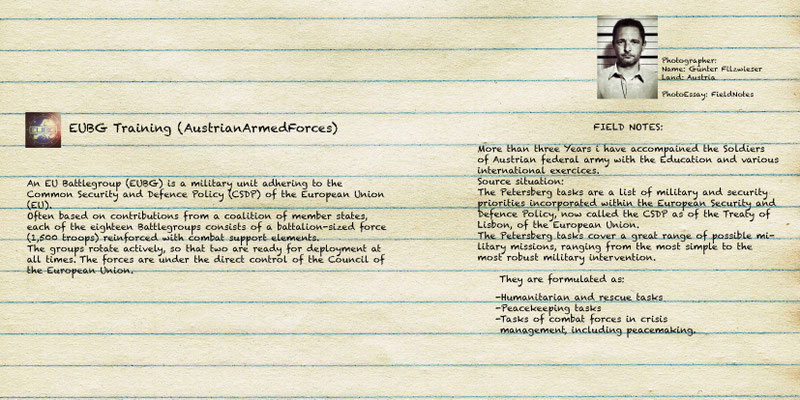 Photographer:
Name: Günter Filzwieser
Land: Austria
PhotoEssay: FieldNotes
EUBG Training (AustrianArmedForces)
An EU Battlegroup (EUBG) is a military unit adhering to the
Common Security and Defence Policy (CSDP) of the European Union
(EU).
Often based on contributions from a coalition of member states,
each of the eighteen Battlegroups consists of a battalion-sized force
(1,500 troops) reinforced with combat support elements.
The groups rotate actively, so that two are ready for deployment at
all times. The forces are under the direct control of the Council of
the European Union.
FIELD NOTES:
More than three Years i have accompained the Soldiers
of Austrian federal army with the Education and various
international exercices.
Source situation:
The Petersberg tasks are a list of military and security
priorities incorporated within the European Security and
Defence Policy, now called the CSDP as of the Treaty of
Lisbon, of the European Union.
The Petersberg tasks cover a great range of possible mi-
litary missions, ranging from the most simple to the
most robust military intervention.
They are formulated as:
-Humanitarian and rescue tasks
-Peacekeeping tasks
-Tasks of combat forces in crisis
management, including peacemaking.